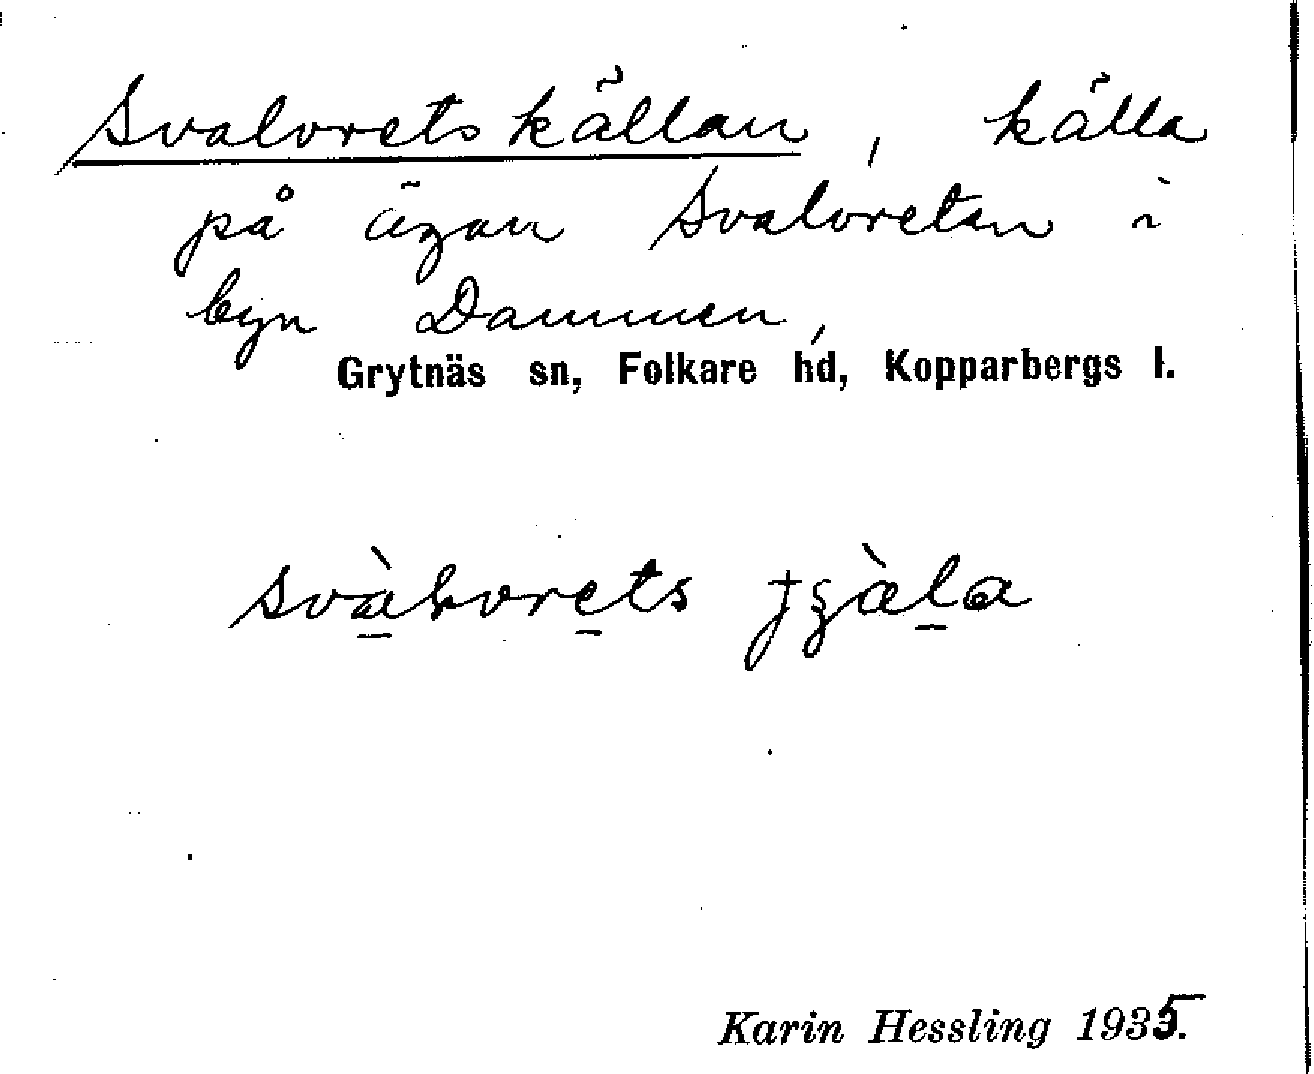 Svalvretskällan, källa
på ägan Svalvretan i
byn Dammen,
Grytnäs sn, Folkare hd, Kopparbergs l.
Karin Hessling 1935.